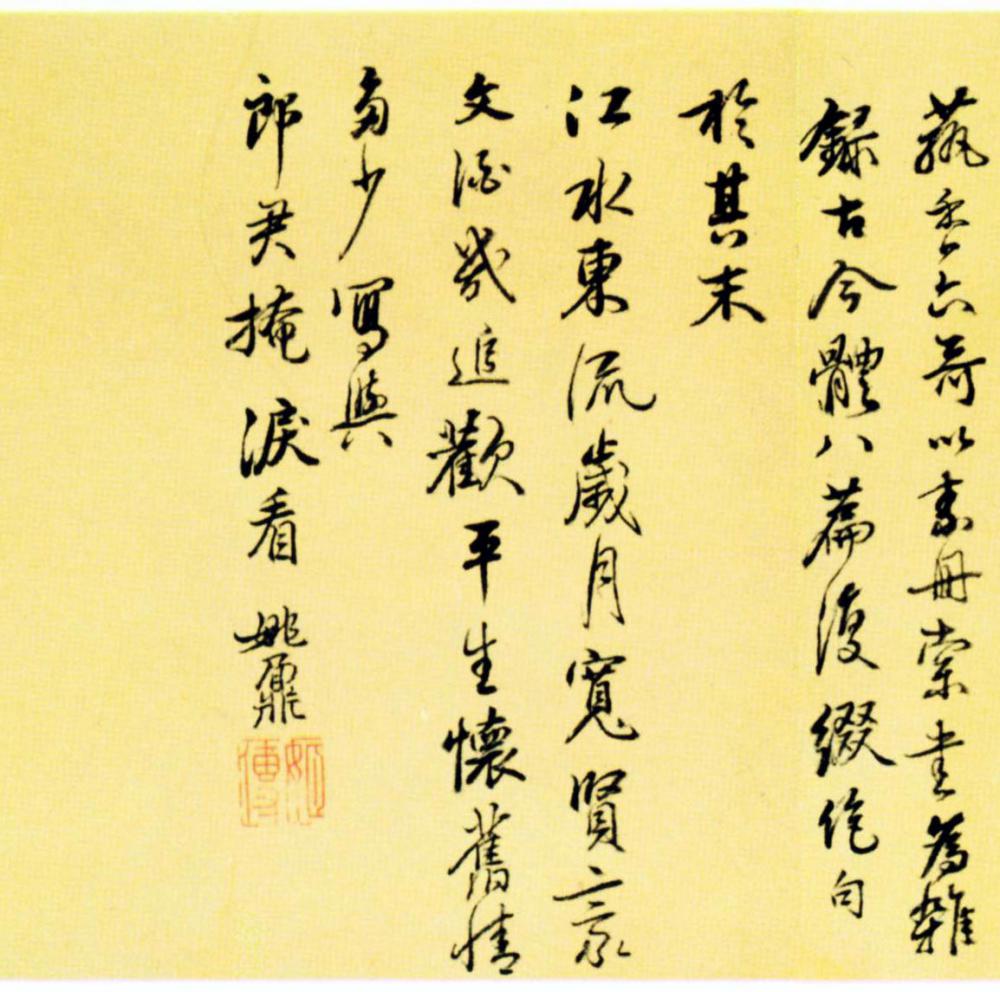 蓺香六哥以素冊索書為雜
錄古今體八篇復綴絕句
於其末
江水東流歲月寬賢豪
文酒幾追歡平生懷舊情
多少寫與
郎君掩淚看 姚鼐
姬傳